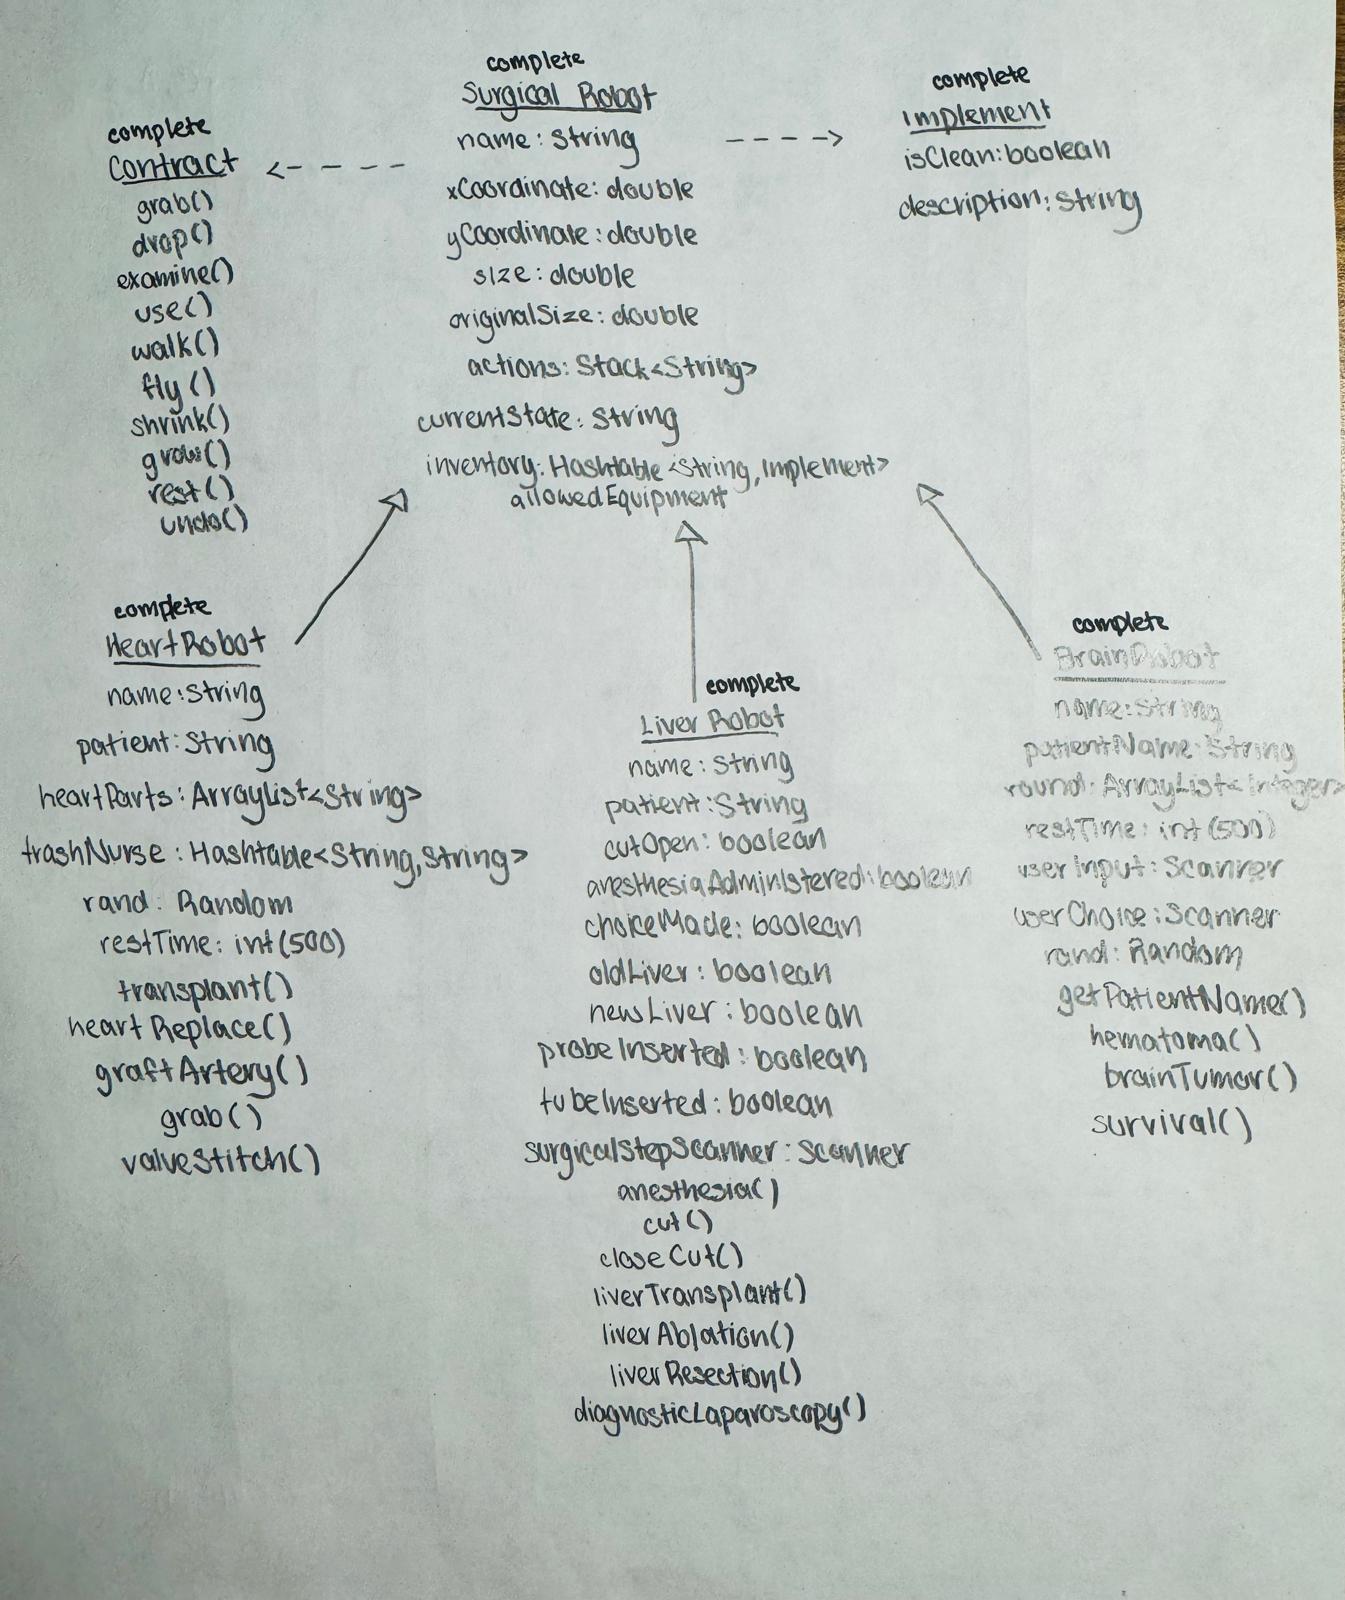 complete
Surgical Robot
name: String
xCoordinate: double
yCoordinate: double
size: double
originalSize: double
actions: Stack<String>
currentState: String
inventory: Hashtable<String, Implement>
allowedEquipment
complete
Contract
grab()
drop()
examine()
use()
walk()
fly()
shrink()
grow()
rest()
undo()
complete
Implement
isClean: boolean
description: String
complete
HeartRobot
name: String
patient: String
heartParts: ArrayList<String>
trashNurse: Hashtable<String, String>
rand: Random
restTime: int(500)
transplant()
heartReplace()
graftArtery()
grab()
valveStitch()
complete
Liver Robot
name: String
patient: String
cutOpen: boolean
anesthesiaAdministered: boolean
choiceMade: boolean
oldLiver: boolean
newLiver: boolean
probeInserted: boolean
tubeInserted: boolean
surgicalStepScanner: Scanner
anesthesia()
cut()
closeCut()
liverTransplant()
liverAblation()
liverResection()
diagnosticLaparoscopy()
complete
BrainRobot
name: String
patientName: String
round: ArrayList<Integer>
restTime: int(500)
userInput: Scanner
userChoice: Scanner
rand: Random
getPatientName()
hematoma()
brainTumor()
survival()